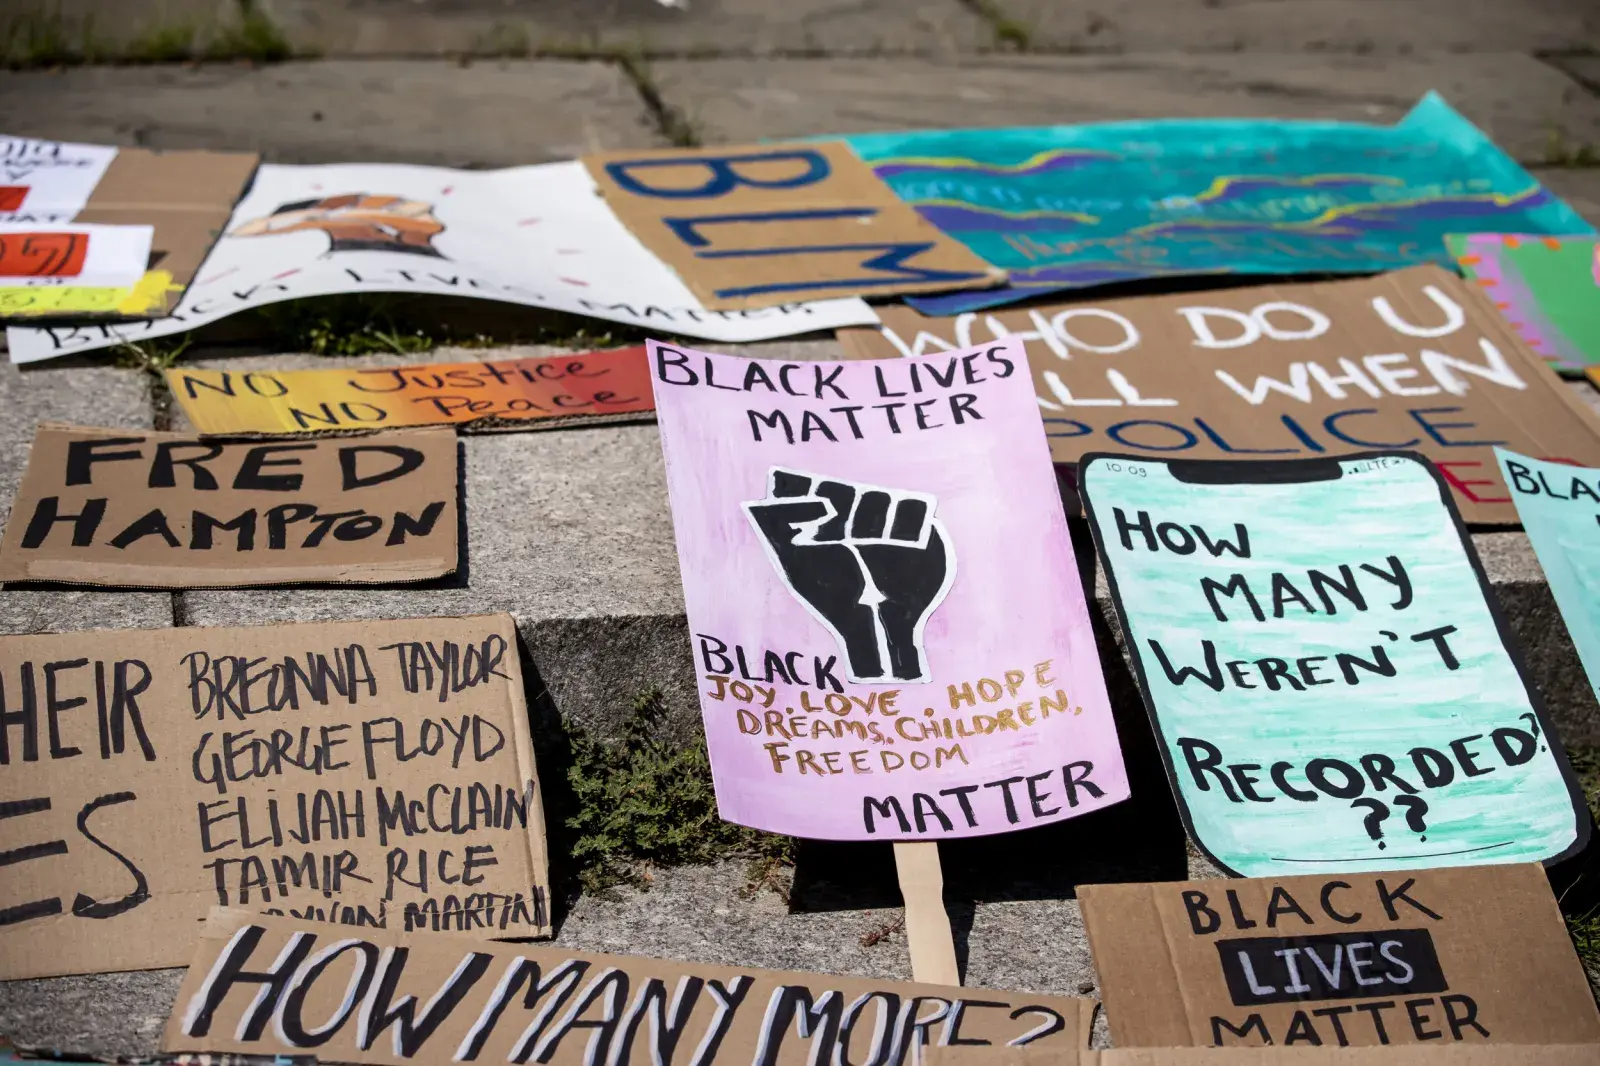 BLACK LIVES MATTER
BLM
NO JUSTICE
NO PEACE
WHO DO U
ALL WHEN
POLICE
FRED
HAMPTON
BLACK LIVES
MATTER
BLACK
JOY, LOVE, HOPE
DREAMS, CHILDREN,
FREEDOM
MATTER
10:09 LTE
HOW
MANY
WEREN'T
RECORDED?
??
BLA
HEIR
ES
BREONNA TAYLOR
GEORGE FLOYD
ELIJAH McCLAIN
TAMIR RICE
MARTIN
HOW MANY MORE?
BLACK
LIVES
MATTER